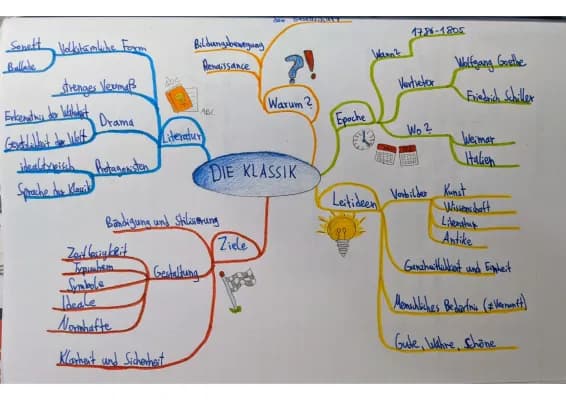 DIE KLASSIK
Warum?
Bildungsbewegung
Renaissance
Epoche
Wann?
1786-1805
Vertreter
Wolfgang Goethe
Friedrich Schiller
Wo?
Weimar
Italien
Leitideen
Vorbilder
Kunst
Wissenschaft
Literatur
Antike
Ganzheitlichkeit und Einheit
Menschliches Bedürfnis (≠Vernunft)
Gute, Wahre, Schöne
??
Ziele
Bändigung und Stilisierung
Gestaltung
Zeitlosigkeit
Symbole
Ideale
Normhafte
Klarheit und Sicherheit
Literatur
Volkstümliche Form
Sonett
Ballade
strenges Versmaß
Drama
Erkenntnis der Wahrheit
Protagonisten
idealtypisch
Sprache der Klassik
ABC
?!